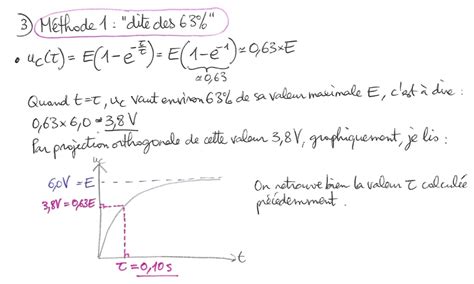 3) Méthode 1 : "dite des 63%"
• u_c(τ) = E(1-e^{-τ/τ}) = E(1-e^{-1}) ≃ 0,63×E
≃0,63
Quand t=τ, u_c vaut environ 63% de sa valeur maximale E, c'est à dire :
0,63 × 6,0 = 3,8 V
Par projection orthogonale de cette valeur 3,8V, graphiquement, je lis :
u_c
6,0V = E
3,8V = 0,63E
t
τ = 0,10 s
On retrouve bien la valeur τ calculée
précédemment.